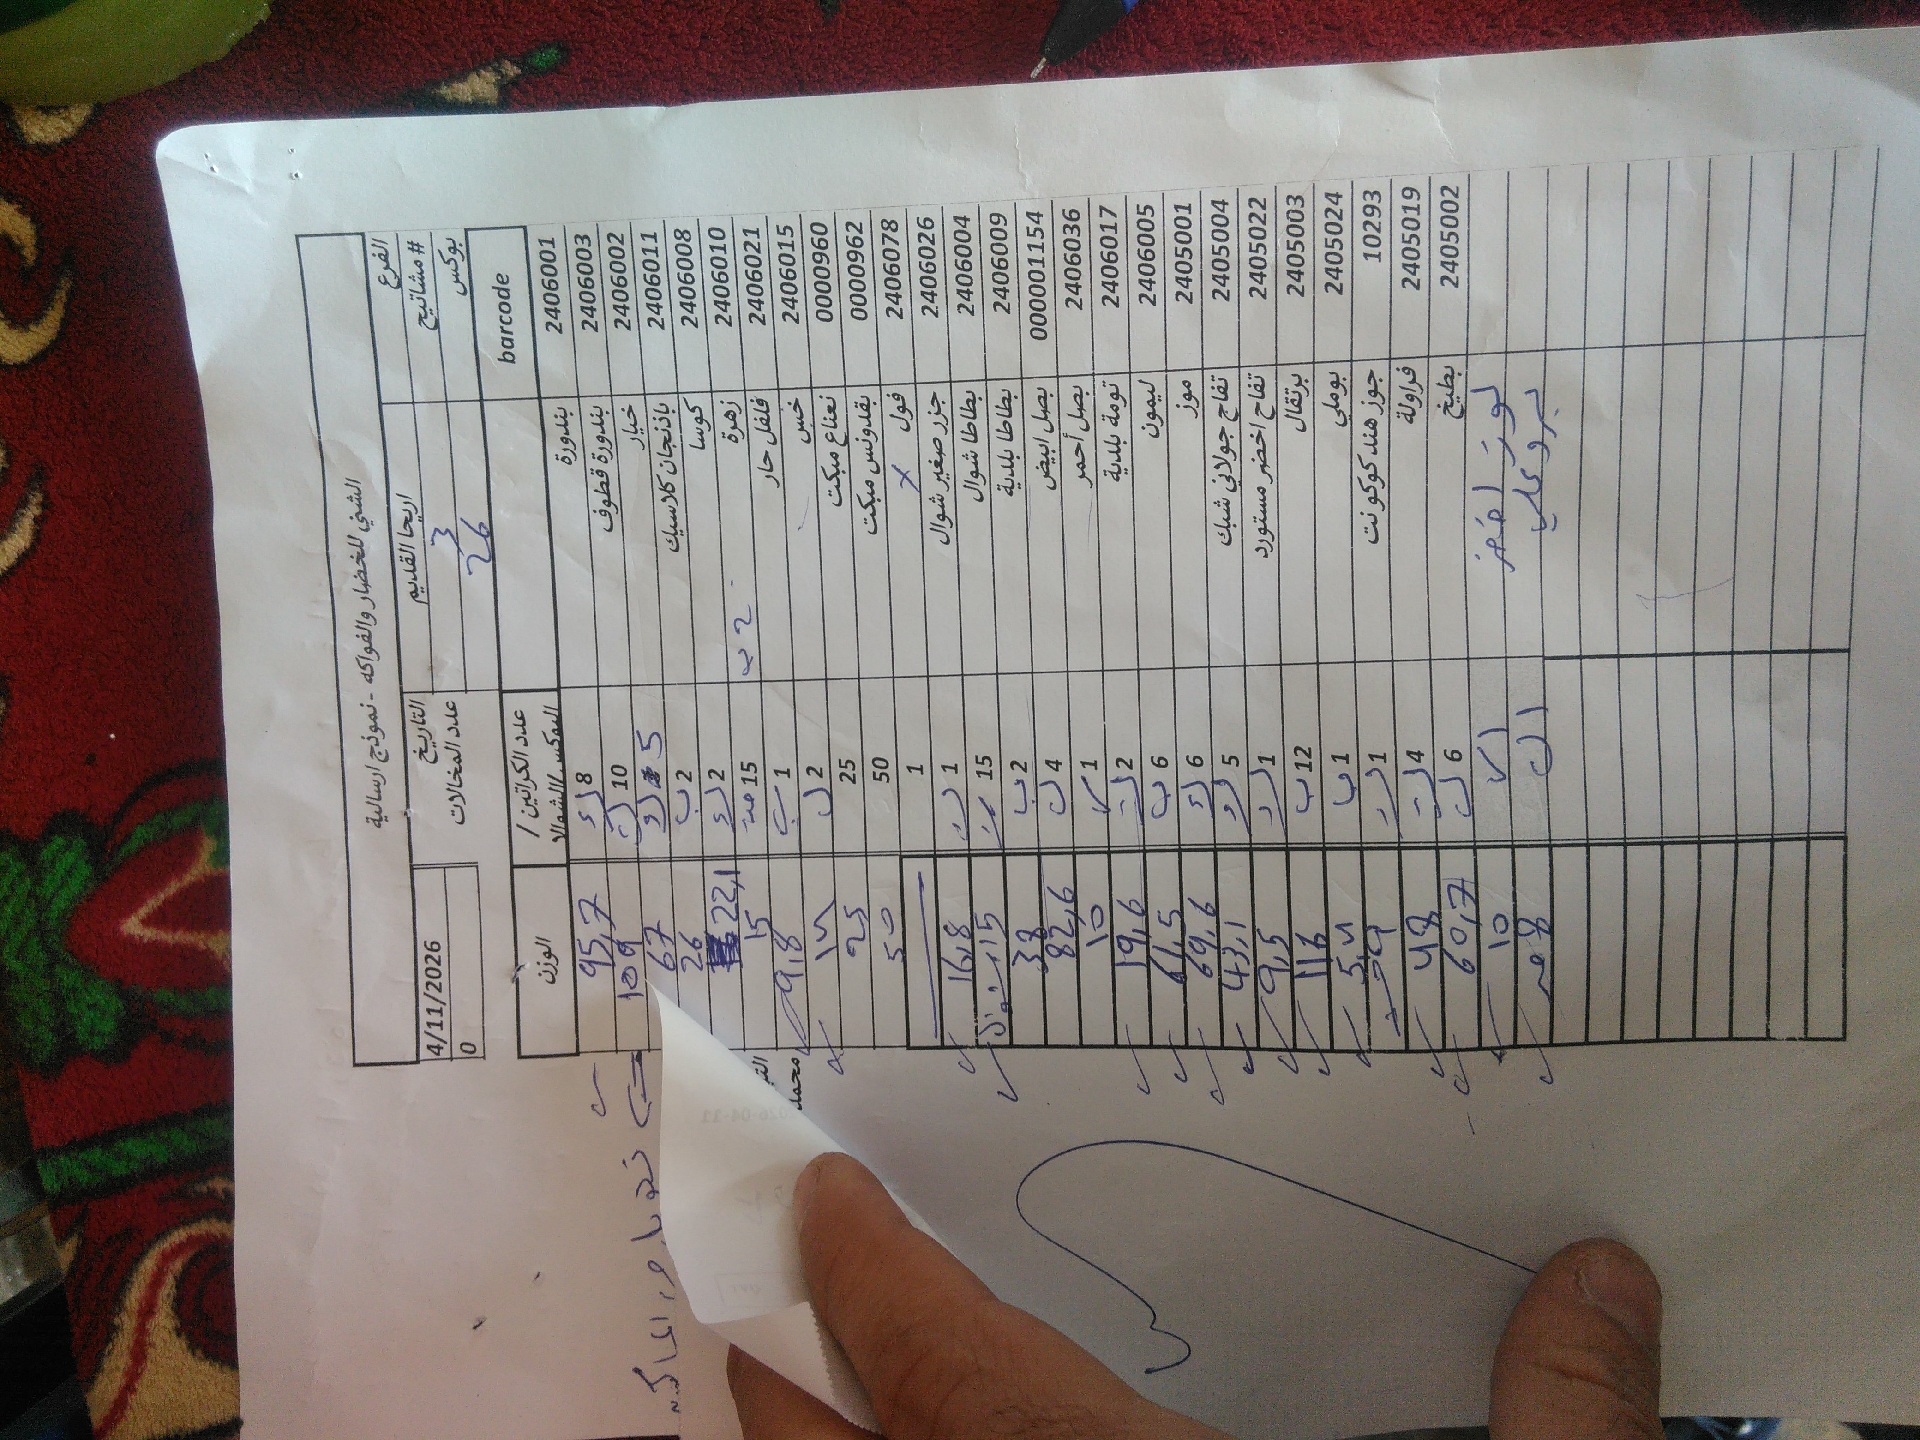 الشني للخضار والفواكه - نموذج ارسالية
الفرع اريحا القديم التاريخ 4/11/2026
# مشاتيح 3 عدد المخالات 0
بوكس 26
barcode عدد الكراتين / البوكس/الشوال الوزن
2406001 بندورة 8 95,7
2406003 بندورة قطوف 10 109
2406002 خيار 5 67
2406011 باذنجان كلاسيك 2 ب 26
2406008 كوسا 2 22,1
2406010 زهرة 2 ب 15 15
2406021 فلفل حار 1 9,8
2406015 خس 2
0000960 نعناع مبكت 25 25
0000962 بقدونس مبكت 50 50
2406078 فول x 1
2406026 جزر صغير شوال 1 16,8
2406004 بطاطا شوال 15 15 شوال
2406009 بطاطا بلدية 2 ب 38
000001154 بصل ابيض 4 82,6
2406036 بصل أحمر 1 10
2406017 ثومة بلدية 2 19,6
2406005 ليمون 6 ب 61,5
2405001 موز 6 69,6
2405004 تفاح جولاني شبك 5 43,1
2405022 تفاح اخضر مستورد 1 9,5
2405003 برتقال 12 ب 116
2405024 بوملي 1 ب
10293 جوز هند كوكونت 1
2405019 فراولة 4 48
2405002 بطيخ 6 60,7
لوز اخضر 1 ك 10
بروكلي 1
محمد